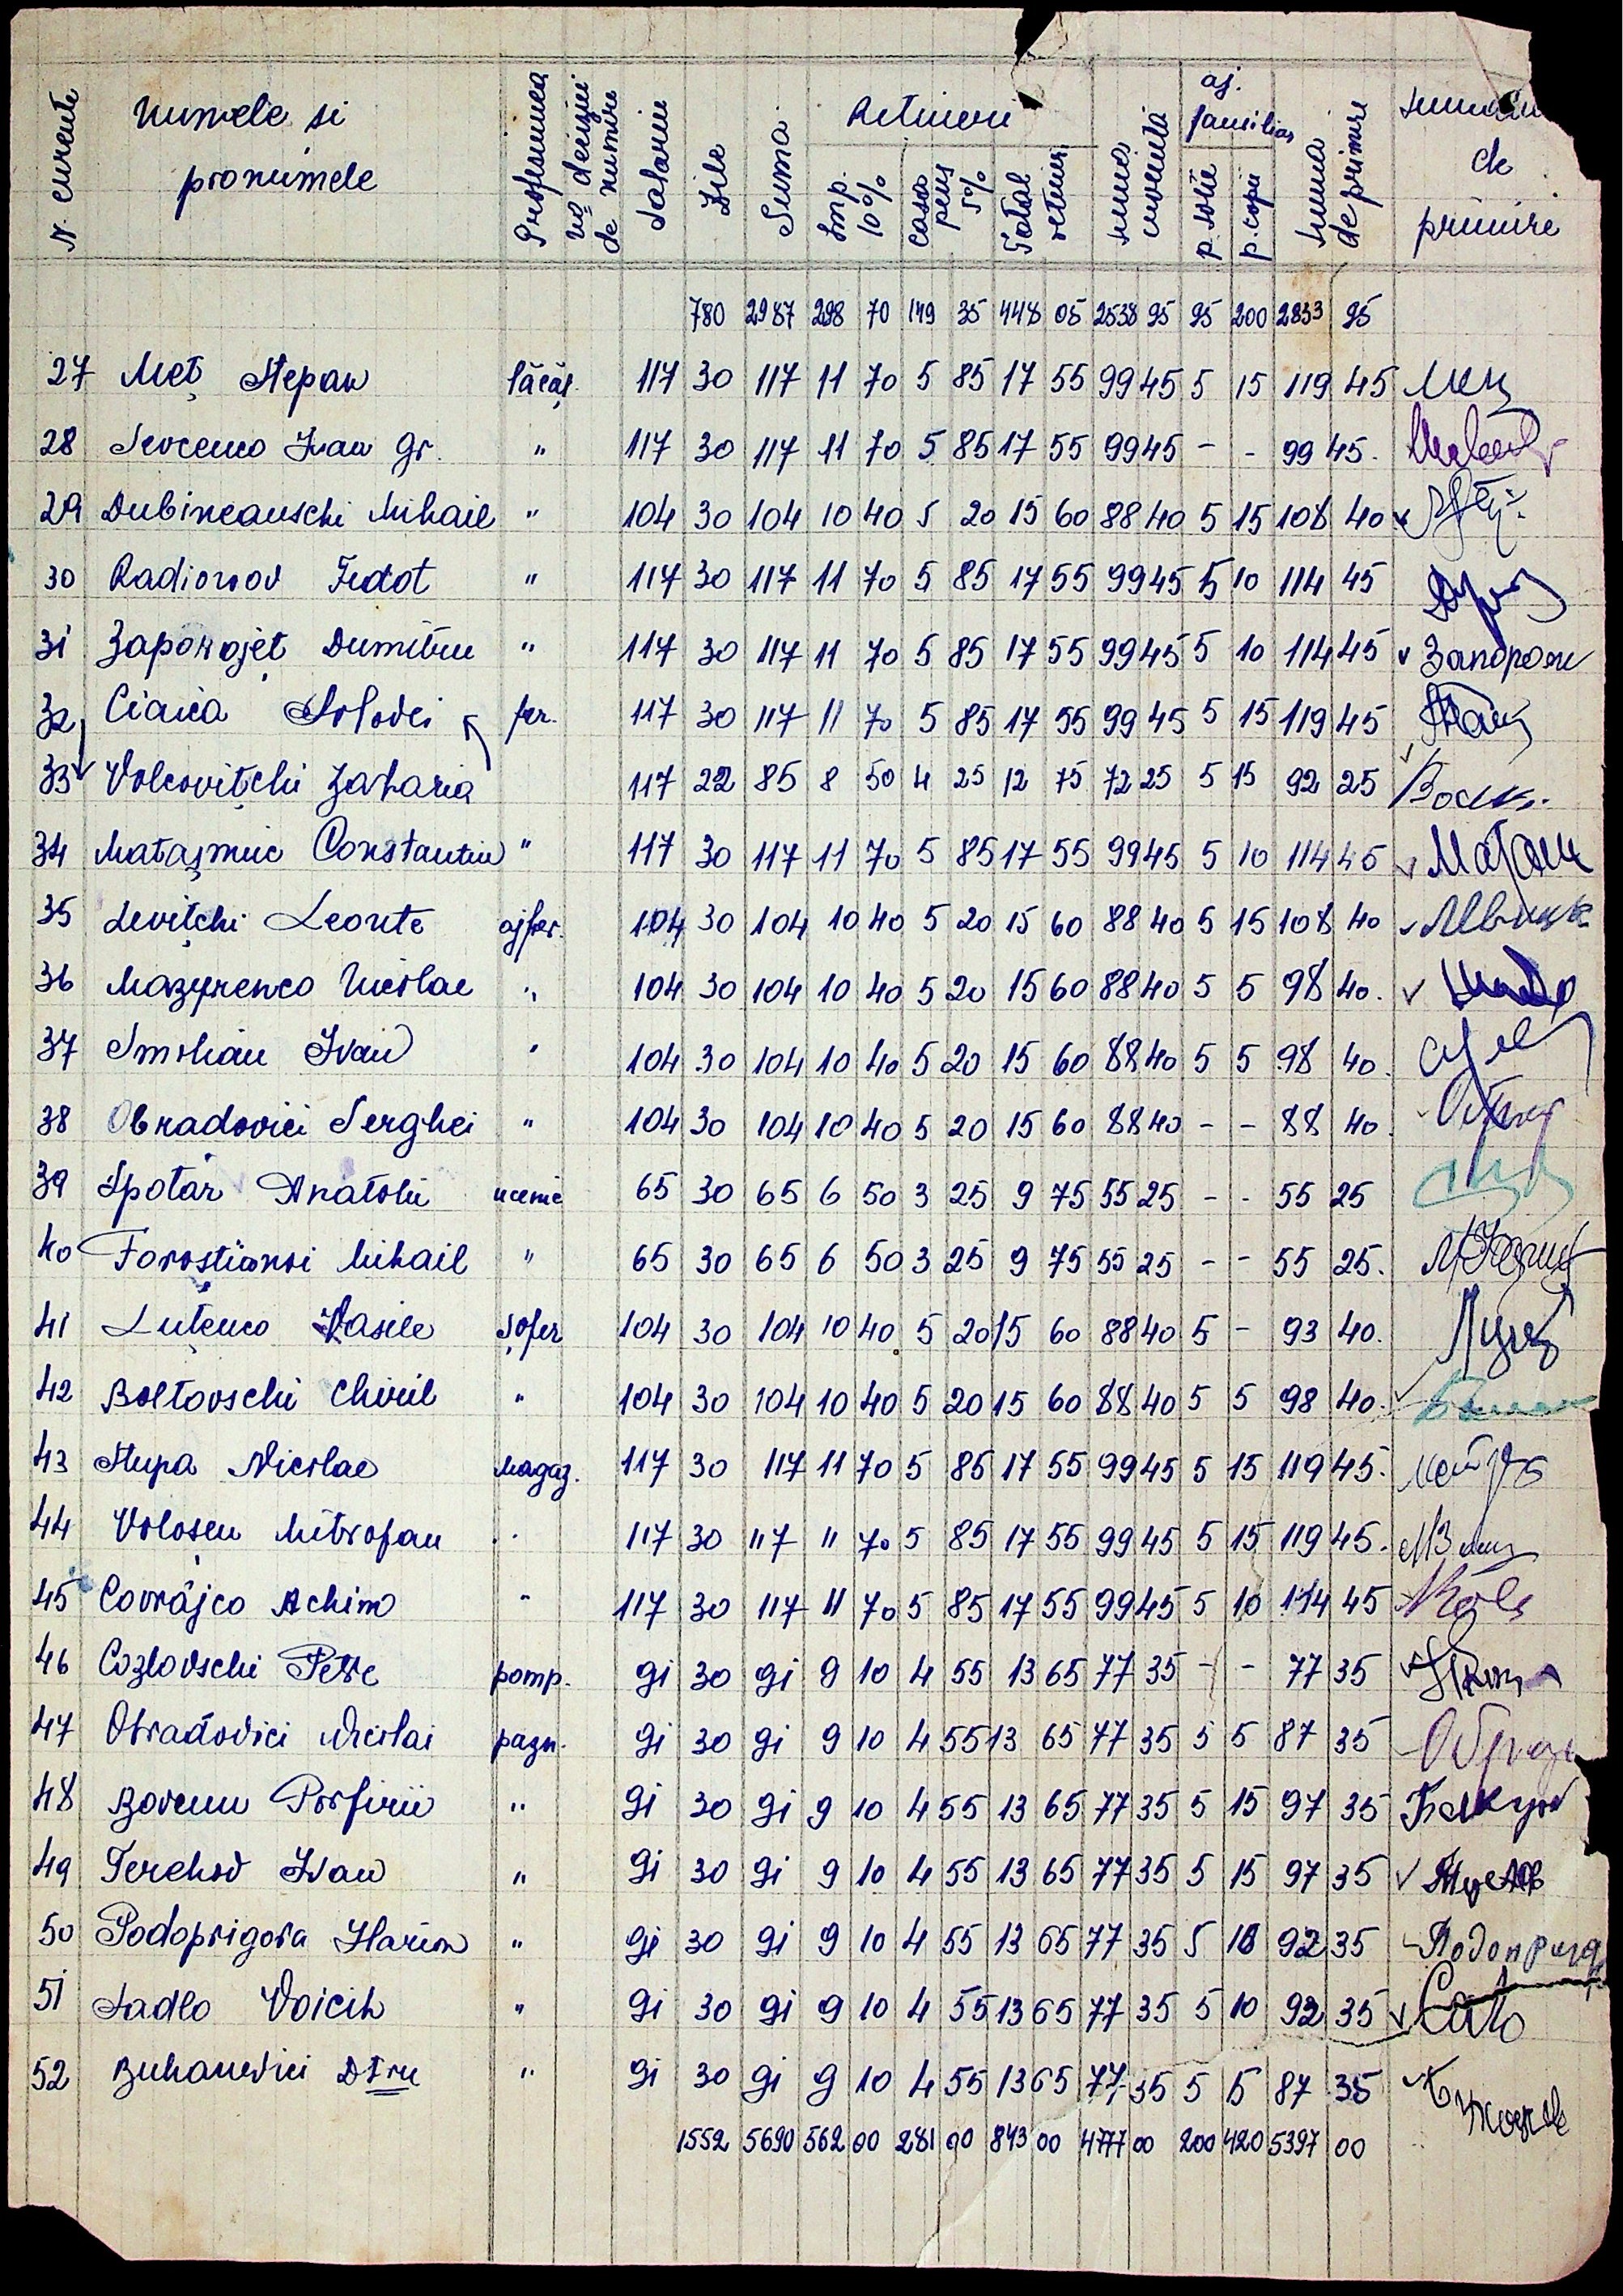 N. curente Numele si pronumele Profesiunea No deciziei de numire Salariu Zile Suma Retineri Imp. 10% Casa pens 5% Total retineri suma cuvenita aj. familiar p. sotie p. copii suma de primire semnatura de primire
780 2987 298 70 149 35 448 05 2538 95 95 200 2833 95
27 Meț Stepan lăcăt. 117 30 117 11 70 5 85 17 55 99 45 5 15 119 45
28 Sevcenco Ivan Gr. " 117 30 117 11 70 5 85 17 55 99 45 - - 99 45.
29 Dubineanschi Mihail " 104 30 104 10 40 5 20 15 60 88 40 5 15 108 40
30 Radionov Fedot " 117 30 117 11 70 5 85 17 55 99 45 5 10 114 45
31 Zaporojeț Dumitru " 117 30 117 11 70 5 85 17 55 99 45 5 10 114 45 Запорож
32 Ciaica Solodei fer. 117 30 117 11 70 5 85 17 55 99 45 5 15 119 45
33 Volcovițchi Zaharia 117 22 85 8 50 4 25 12 75 72 25 5 15 92 25
34 Matașniuc Constantin " 117 30 117 11 70 5 85 17 55 99 45 5 10 114 45
35 Levițchi Leonte ajfer. 104 30 104 10 40 5 20 15 60 88 40 5 15 108 40
36 Mazyrenco Nicolae " 104 30 104 10 40 5 20 15 60 88 40 5 5 98 40.
37 Smolian Ivan " 104 30 104 10 40 5 20 15 60 88 40 5 5 98 40.
38 Obradovici Serghei " 104 30 104 10 40 5 20 15 60 88 40 - - 88 40
39 Spotar Anatolii ucenic 65 30 65 6 50 3 25 9 75 55 25 - - 55 25
40 Mihail " 65 30 65 6 50 3 25 9 75 55 25 - - 55 25.
41 Luțenco Vasile șofer 104 30 104 10 40 5 20 15 60 88 40 5 - 93 40.
42 Boltovschi Chiril " 104 30 104 10 40 5 20 15 60 88 40 5 5 98 40.
43 Stupa Nicolae magaz. 117 30 117 11 70 5 85 17 55 99 45 5 15 119 45.
44 Volosen Mitrofan " 117 30 117 11 70 5 85 17 55 99 45 5 15 119 45.
45 Covrâjco Achim " 117 30 117 11 70 5 85 17 55 99 45 5 10 114 45
46 Cozlovschi Petre pomp. 91 30 91 9 10 4 55 13 65 77 35 - - 77 35
47 Obradovici Nicolai pazn. 91 30 91 9 10 4 55 13 65 77 35 5 5 87 35
48 Porfirii " 91 30 91 9 10 4 55 13 65 77 35 5 15 97 35
49 Terehov Ivan " 91 30 91 9 10 4 55 13 65 77 35 5 15 97 35
50 Podoprigora Ilarion " 91 30 91 9 10 4 55 13 65 77 35 5 10 92 35 Подоприга
51 Sadlo Voicih " 91 30 91 9 10 4 55 13 65 77 35 5 10 92 35
52 Buhanevici Dtru " 91 30 91 9 10 4 55 13 65 77 35 5 5 87 35
1552 5690 562 00 281 00 843 00 4777 00 200 420 5397 00